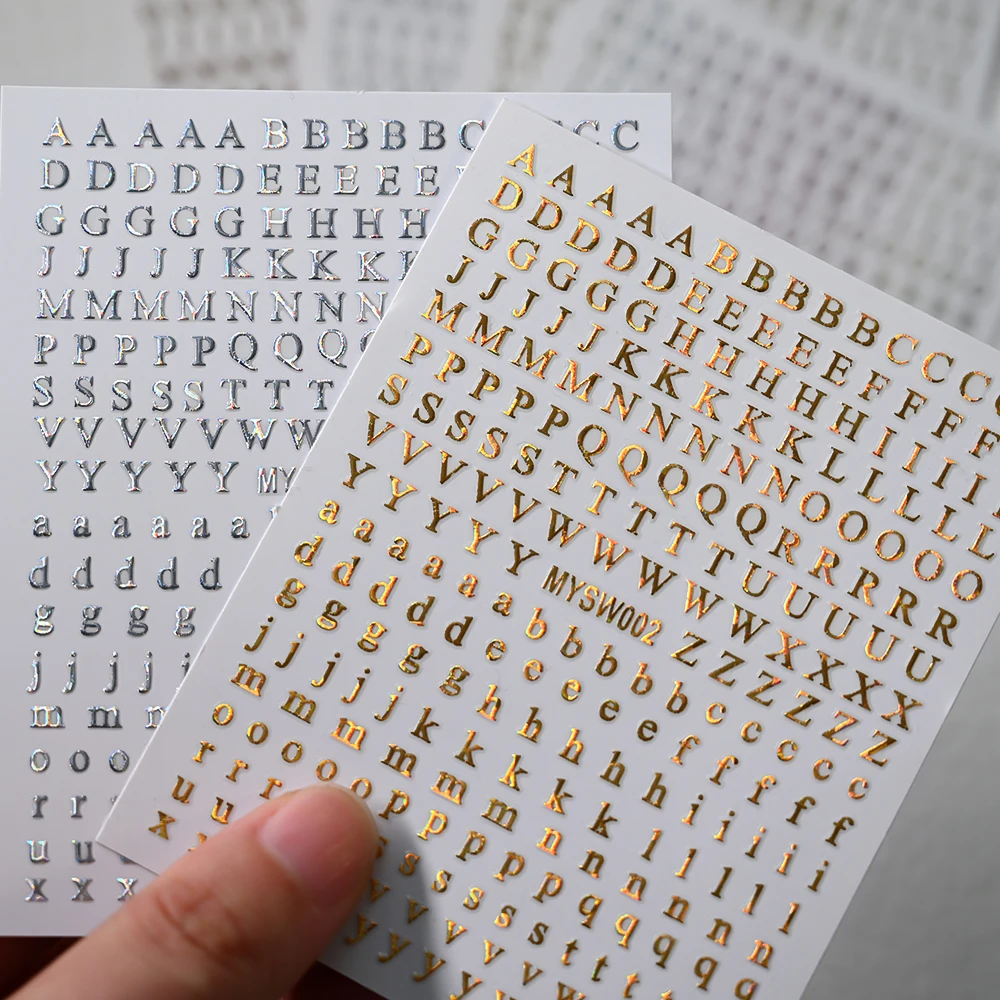 A A A A A B B B B B C C C
D D D D D E E E E E
G G G G G H H H H
J J J J J K K K K
M M M M N N N N
P P P P P Q Q Q
S S S S S T T T
V V V V V W W
Y Y Y Y Y MY
a a a a a
d d d d d
g g g g
j j j j
m m
o o o
r r
u u
x x x
A A A A A B B B B B C C C
D D D D D E E E E E F F F F
G G G G G H H H H H I I I I
J J J J J K K K K K L L L L L
M M M M N N N N N O O O O O
P P P P P Q Q Q Q Q R R R R R
S S S S S T T T T T U U U U U
V V V V V W W W W W X X X X
Y Y Y Y Y MYSW002 Z Z Z Z Z Z
a a a a a a b b b b b c c c c c
d d d d d e e e e e f f f f f
g g g g g h h h h h i i i i i
j j j j j k k k k k l l l l l
m m m m m m n n n n n n
o o o o o p p p p p q q q q q
r r r s s s s s t t t
u u v v v v v w
x y y y y